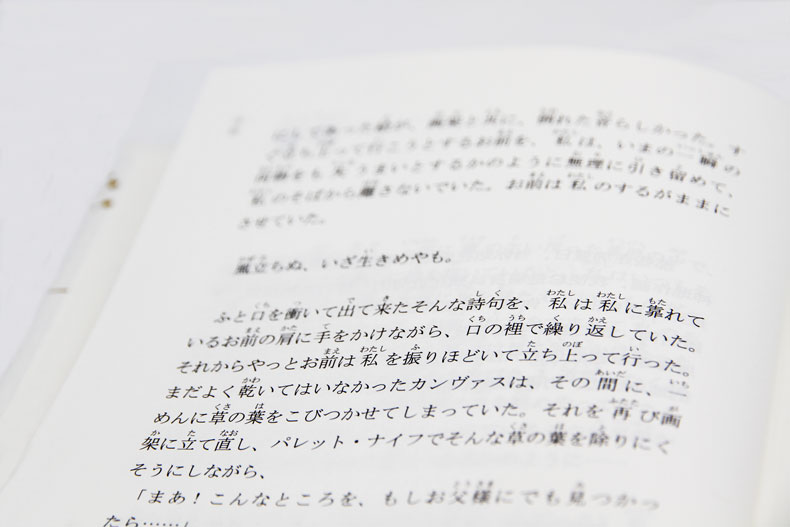 にしてあった絵が、画架と共に、倒れた音らしかった。す
ぐ立ち上って行こうとするお前を、私は、いまの一瞬の
何物をも失うまいとするかのように無理に引き留めて、
私のそばから離さないでいた。お前は私のするがままに
させていた。
風立ちぬ、いざ生きめやも。
ふと口を衝いて出て来たそんな詩句を、私は私に靠れて
いるお前の肩に手をかけながら、口の裡で繰り返していた。
それからやっとお前は私を振りほどいて立ち上って行った。
まだよく乾いてはいなかったカンヴァスは、その間に、一
めんに草の葉をこびつかせてしまっていた。それを再び画
架に立て直し、パレット・ナイフでそんな草の葉を除りにく
そうにしながら、
「まあ！こんなところを、もしお父様にでも見つかっ
たら……」